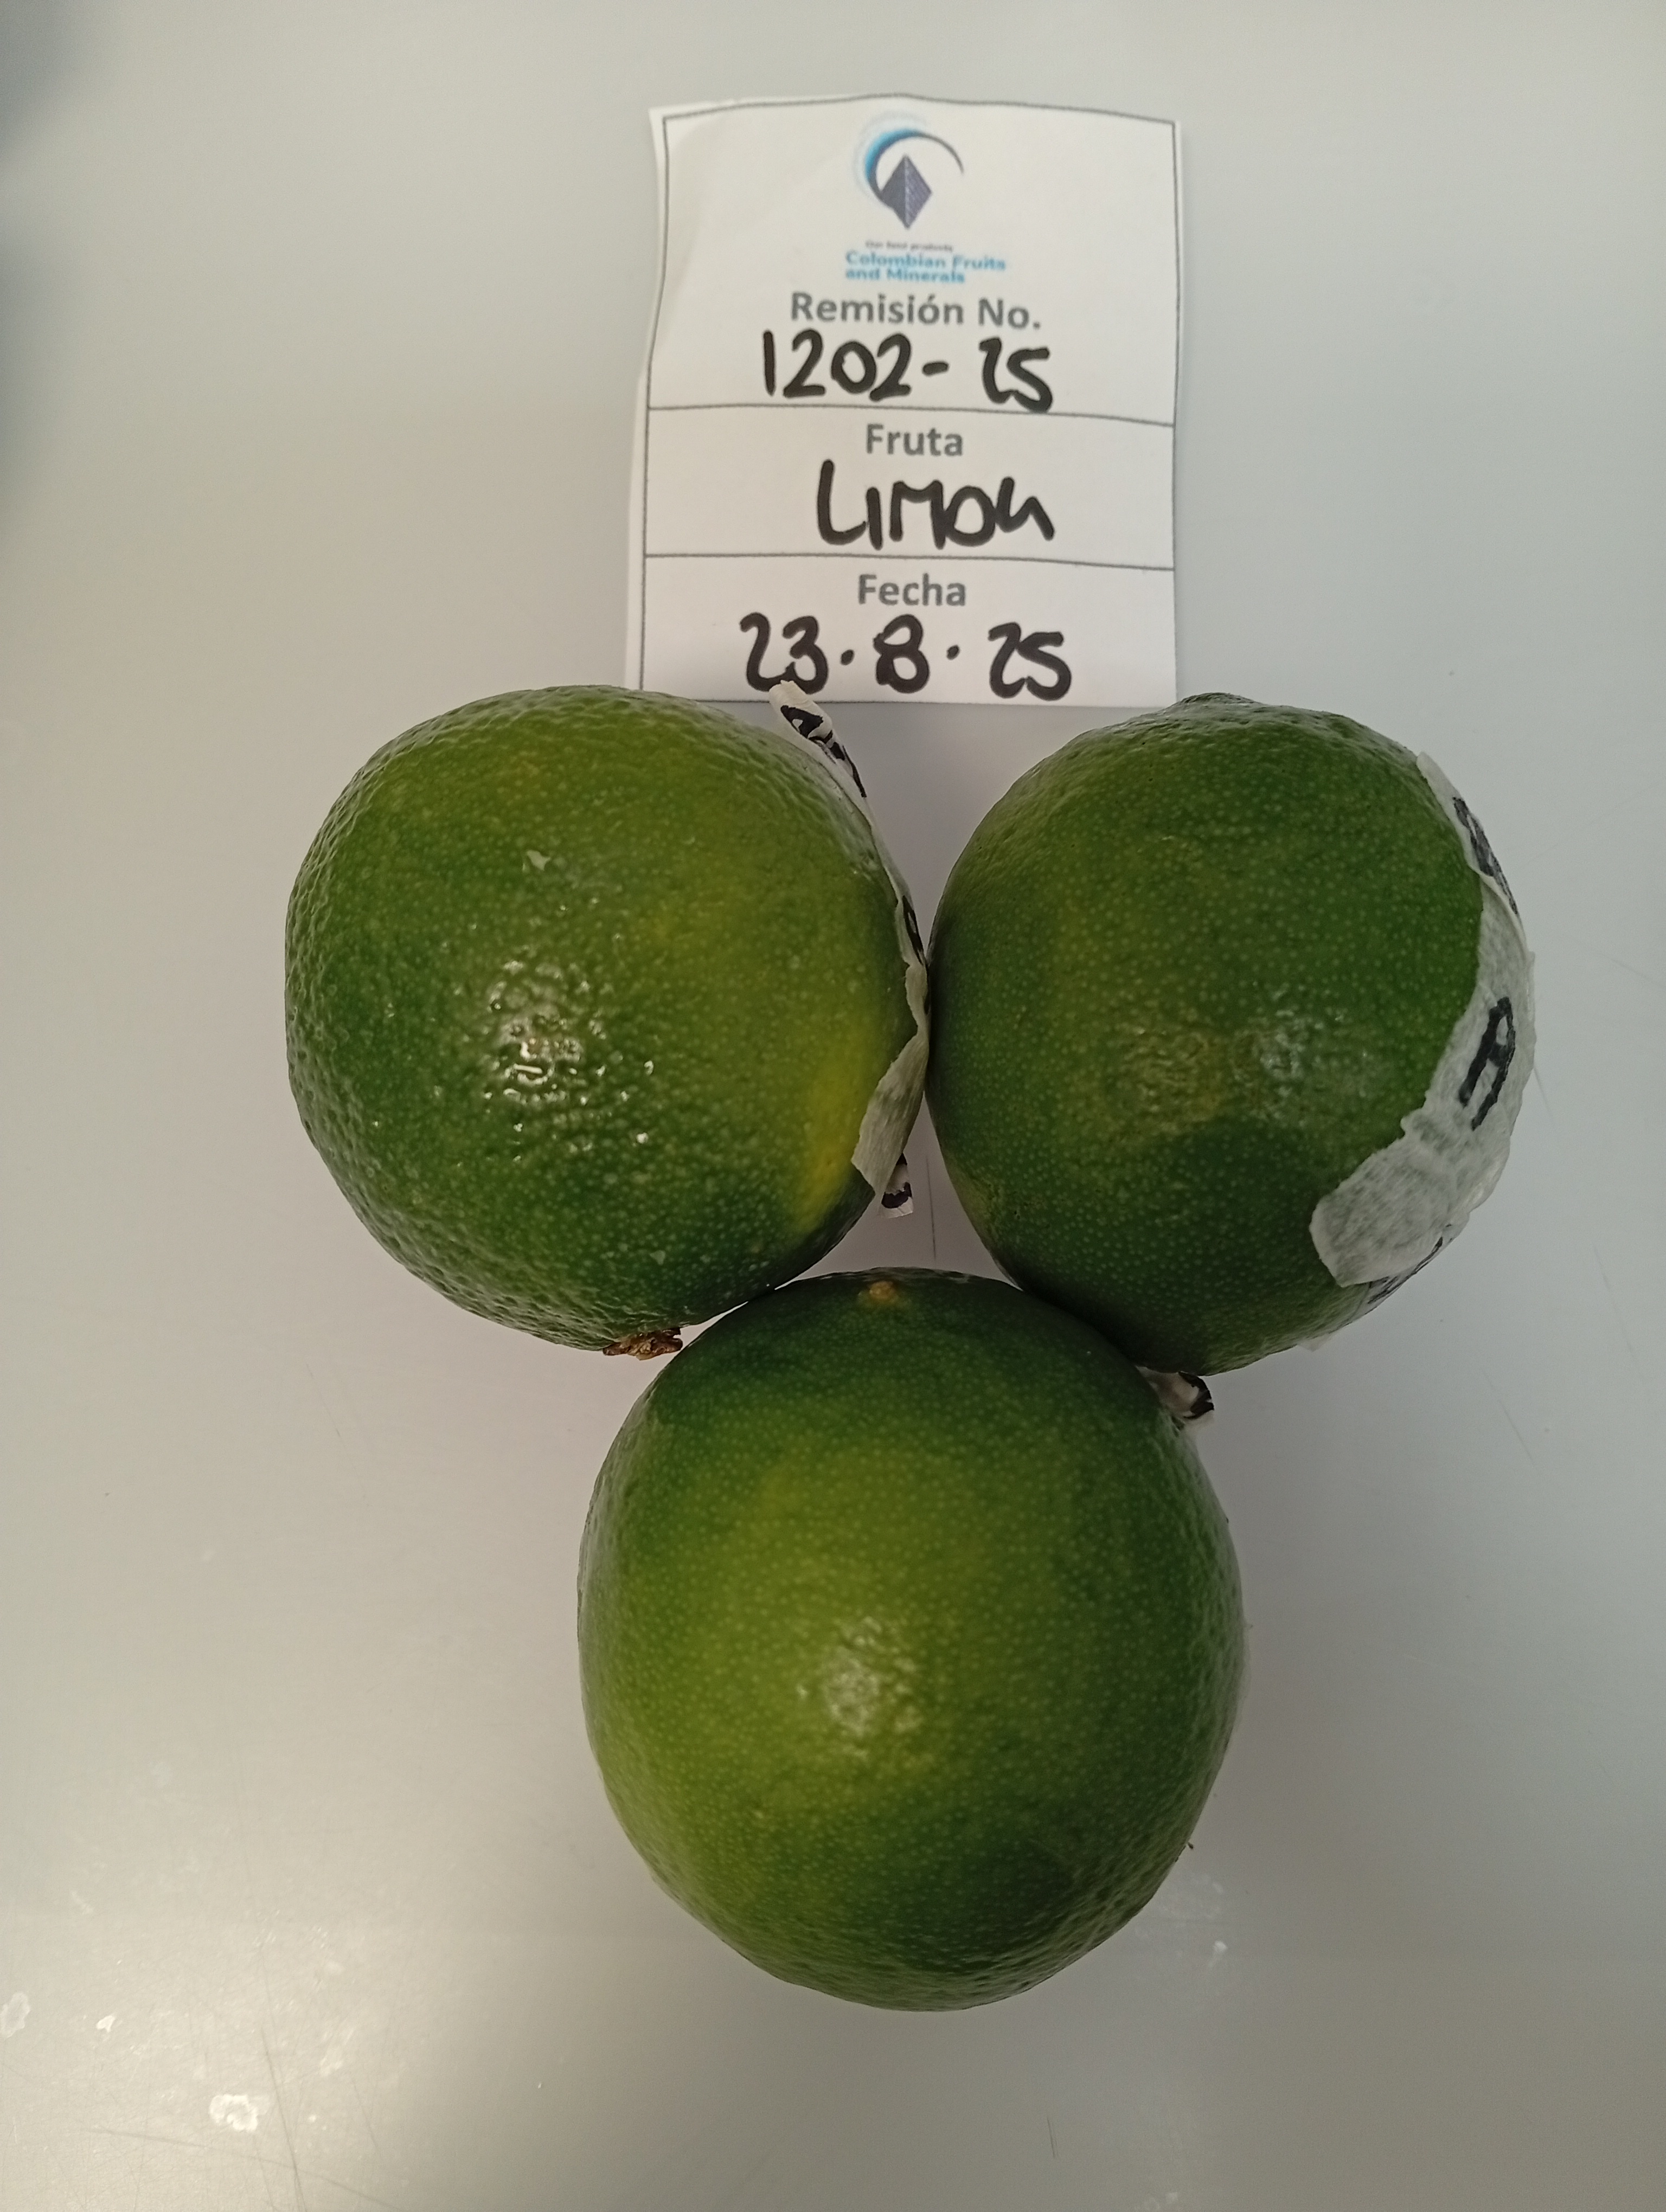 Our best products
Colombian Fruits
and Minerals
Remisión No.
1202-25
Fruta
LIMON
Fecha
23.8.25
A